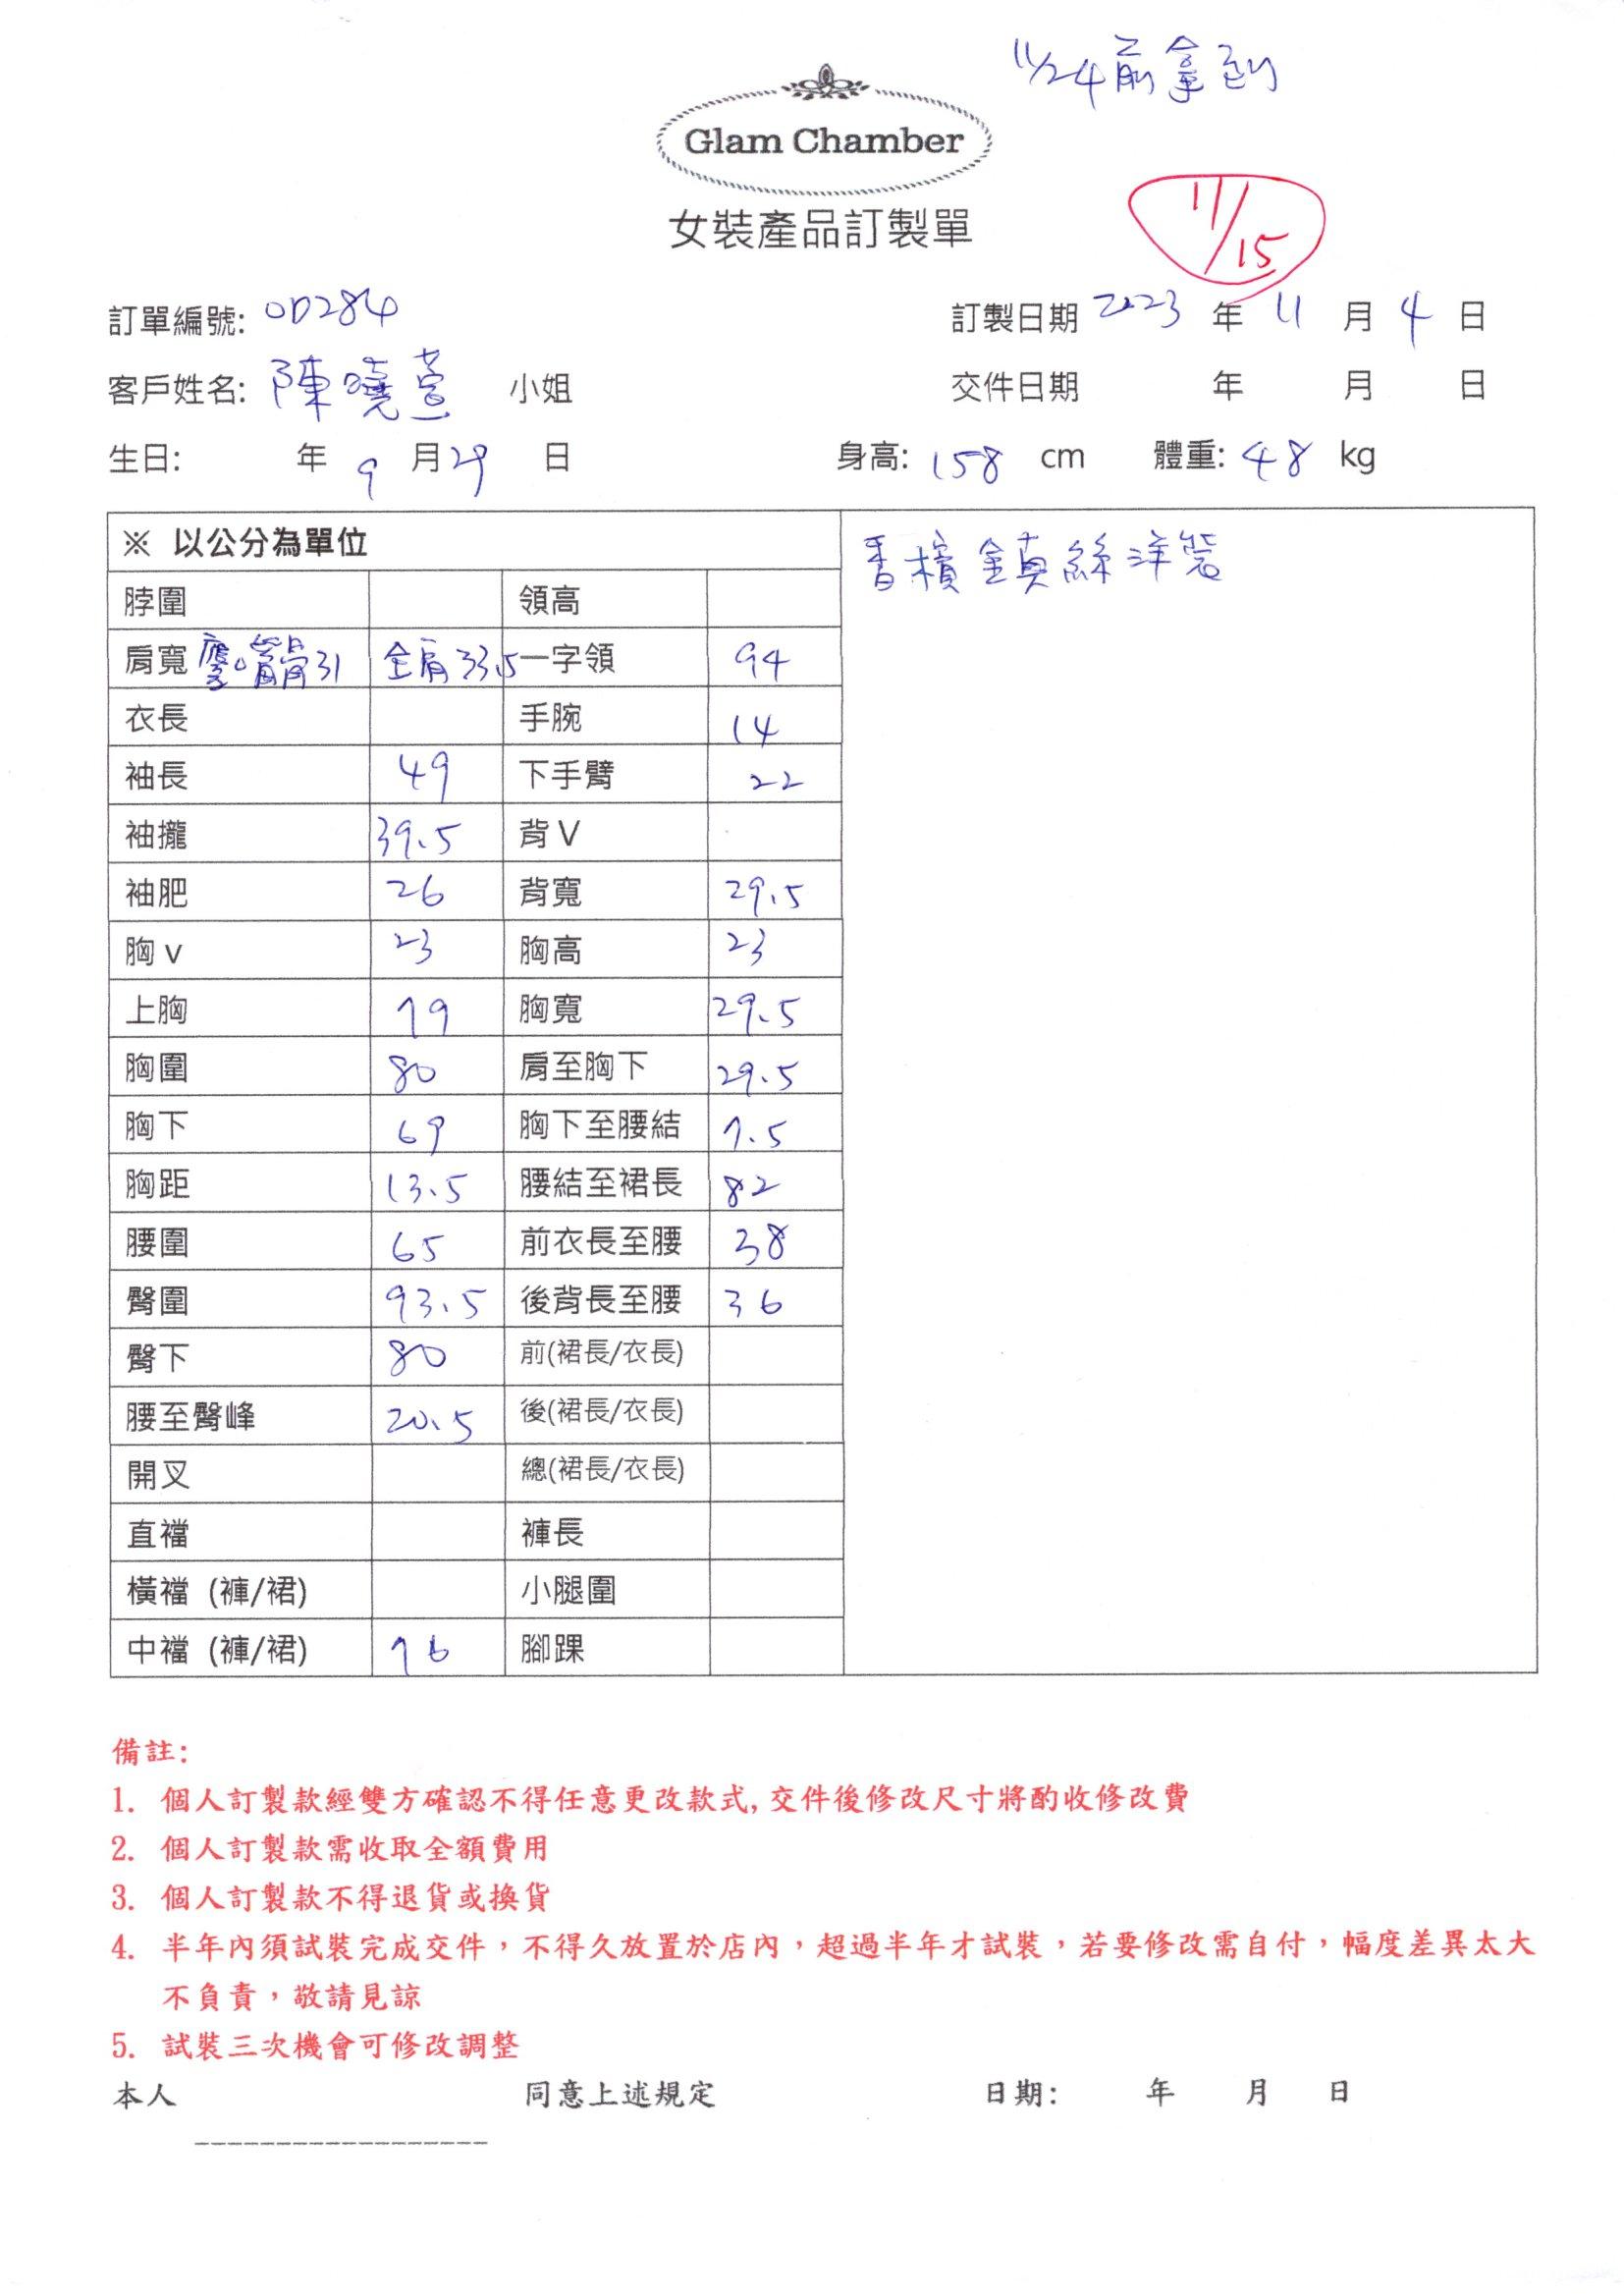 11/24前拿到
Glam Chamber
女裝產品訂製單
11/15
訂單編號: OD284 訂製日期 2023 年 11 月 4 日
客戶姓名: 陳曉萱 小姐 交件日期 年 月 日
生日: 年 9 月 29 日 身高: 158 cm 體重: 48 kg
※ 以公分為單位
香檳 鎮絲洋裝
脖圍 領高
肩寬 31 全肩 33.5 一字領 94
衣長 手腕 14
袖長 49 下手臂 22
袖攏 39.5 背V
袖肥 26 背寬 29.5
胸v 23 胸高 23
上胸 79 胸寬 29.5
胸圍 80 肩至胸下 29.5
胸下 69 胸下至腰結 7.5
胸距 13.5 腰結至裙長 82
腰圍 65 前衣長至腰 38
臀圍 93.5 後背長至腰 36
臀下 80 前(裙長/衣長)
腰至臀峰 20.5 後(裙長/衣長)
開叉 總(裙長/衣長)
直襠 褲長
橫襠 (褲/裙) 小腿圍
中襠 (褲/裙) 76 腳踝
備註:
1. 個人訂製款經雙方確認不得任意更改款式,交件後修改尺寸將酌收修改費
2. 個人訂製款需收取全額費用
3. 個人訂製款不得退貨或換貨
4. 半年內須試裝完成交件，不得久放置於店內，超過半年才試裝，若要修改需自付，幅度差異太大
不負責，敬請見諒
5. 試裝三次機會可修改調整
本人 同意上述規定 日期: 年 月 日